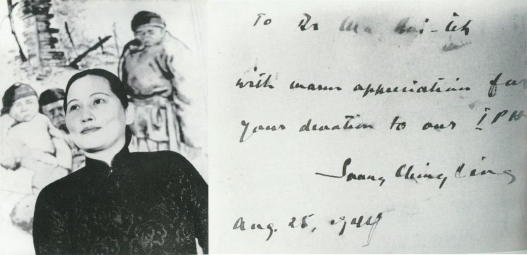 To Dr Ma
with warm appreciation for
your devotion to our IPH
Soong Ching Ling
Aug. 25,